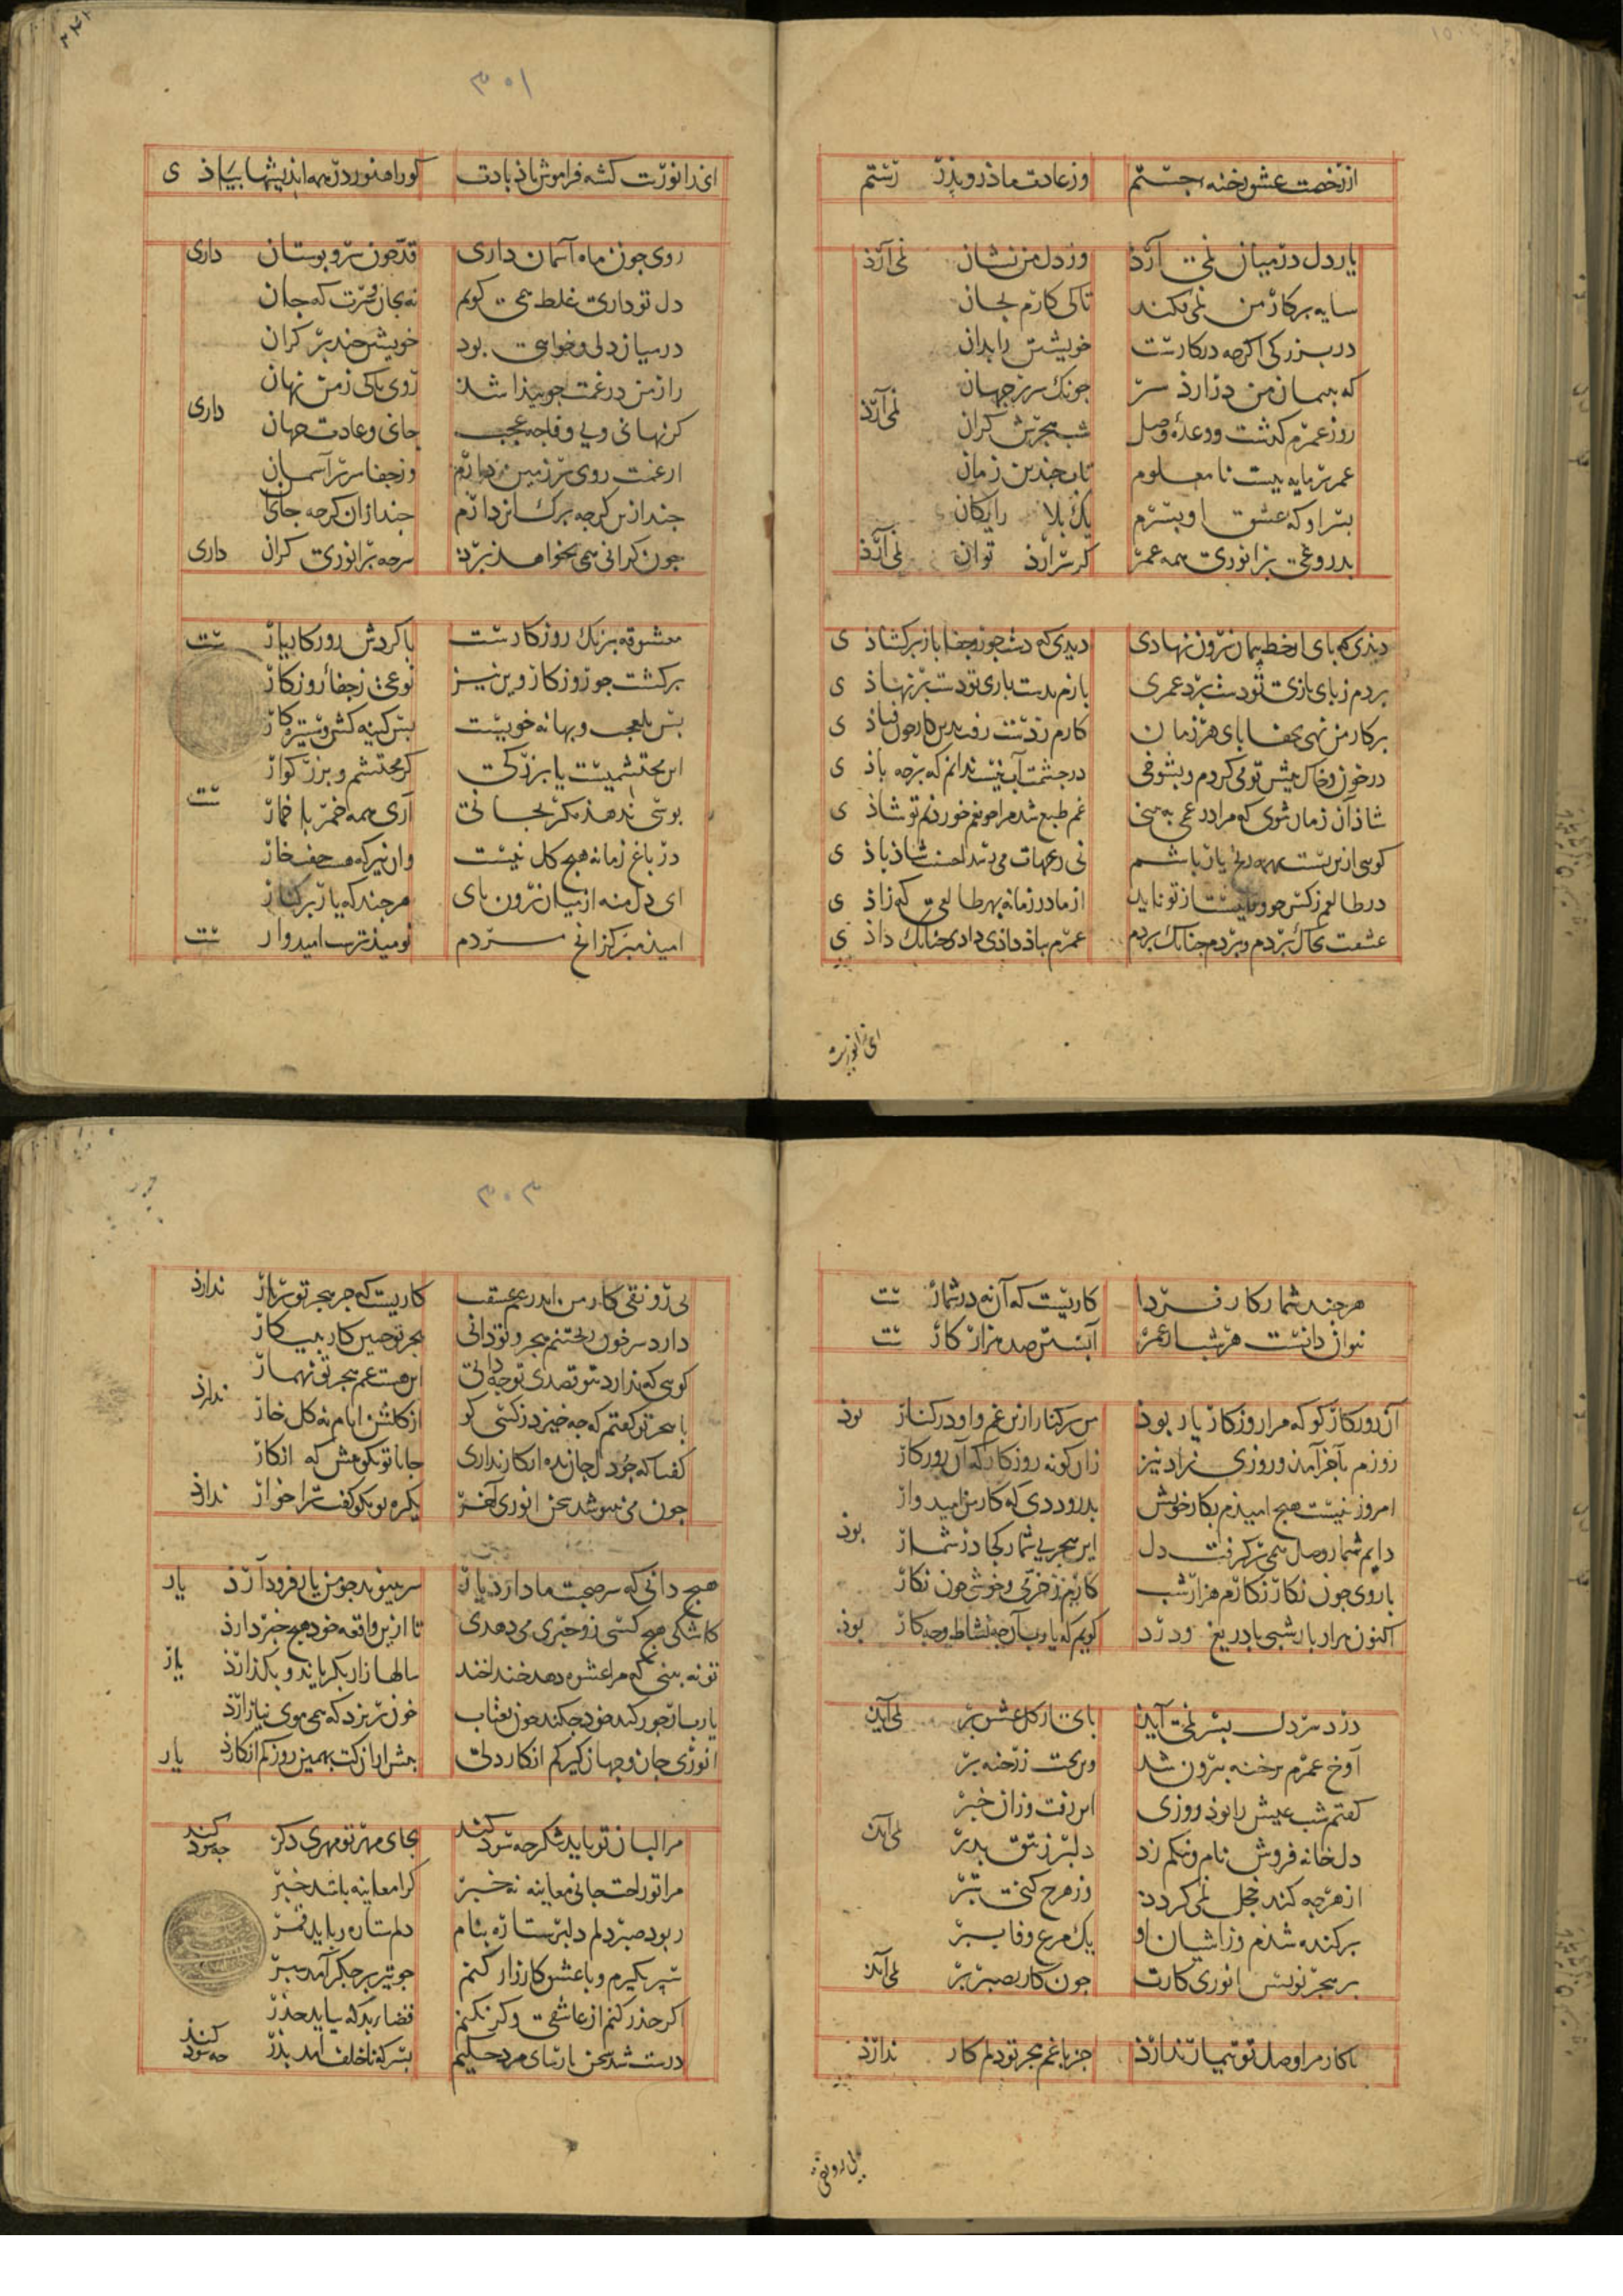 از زخمت عشق رخنه جستم وز عادت مادر و پدر رستم
یار دل در میان نمی آرد وز دل من نشان نمی آرد
سایه بر کار من نمی فکند تا کی کارم بجان
در بزرگی اگرچه در کارست خویشتن را بدان
که بپیمان من در نارد سر چونک سر در جهان نمی آرد
روز عمرم گذشت و وعده وصل شب هجرش کران
عمر سرمایه ییست نامعلوم تاب چندین زمان
بسر او که عشق او بسرم یک بلا رایگان
بدروغی بر انوری همه عمر گر سر آرد توان نمی آرد
دیدی که پای از خط پیمان برون نهادی دیدی که دست جور و جفا باز برگشاد ی
بردم ز پای بازی تو دست برد عمری بازم بدست بازی تو دست بر نهاد ی
بر کار من نهی بجفا پای هر زمان کارم ز دست رفت بدین کار چون فتاد ی
در خون و خاک پیش تو می گردم و بشوخی در چشمت آب نیست ندانم که بر چه باد ی
شاد آن زمان شوی که مرا در غمی ببینی غم طبع شد مرا چو بغم خوردنم تو شاد ی
گویی ازین پست همه ره یار باشم نی زین جهات می رسد احسنت شاد باد ی
در طالعم ز کس چو وفا نیست از تو ناید از مادر زمانه بهر طالعی که زاد ی
عشقت بخاک بردم و بردم چنانک بردم عمرم بباد دادی و دادی چنانک داد ی
ای زانوریت
۳۰۱
ای زانوریت گشته فراموش یاد بادت کو را هنوز در همه اندیشها بیاد ی
روی چون ماه آسمان داری قد چون سرو بوستان داری
دل تو داری غلط همی گویم نه بجان و سرت که جان
در میان دلی و خواهی بود خویشتن چند بر کران
راز من در غمت چو پیدا شد روی تا کی ز من نهان داری
گر نهانی و بی وفا چه عجب جانی و عادت جهان
از غمت روی بر زمین دارم وز جفا سر بر آسمان
چند ازین گرچه برگ این دارم چند ازان گرچه جای
چون گرانی همی بخواهد برد سر چه بر انوری گران داری
معشوقه برنگ روزگارست با گردش روزگار یار ست
برگشت چو روزگار و آن نیز نوعی ز جفای روزگار
بس بلعجب و بهانه خوییست بس کینه کش و ستیزه کار
این محتشمیست یا بزرگی گر محتشم و بزرگوار ست
بوسی ندهد مگر بجانی آری همه خمر با خمار
در باغ زمانه هیچ گل نیست وان نیز که هست جفت خار
ای دل منه از میان برون پای هر چند که یار بر کنار
امید مبر گر از تو مردم نومیدتر است امیدوار ست
هر چند شمار کار فردا کاریست که آن نه در شمار ست
بتوان دانست هر شب از عمر آبستن صد هزار کار ست
آن روزگار کو که مرا روزگار یار بود من بر کنار ازین غم و او در کنار بود
روزم بآخر آمد و روزی نزاد نیز زان گونه روزگار که آن روزگار
امروز نیست هیچ امیدم بکار خویش بدرود دی که کار من امیدوار
دایم شمار وصل همی بر گرفت دل این هجر بی شمار کجا در شمار بود
با روی چون نگار نگارم هزار شب کارم ز خرمی و خوشی چون نگار
اکنون هزار بار شبی با دریغ و درد گویم که یا رب آن چه نشاط و چه کار بود
درد سر دل بسر نمی آید پای از گل عشق بر نمی آید
آوخ عمرم برخنه بیرون شد وین بخت ز رخنه بر
گفتم شب عیش را بود روزی این رفت و زان خبر
دل خانه فروش نام و ننگم زد دلبر ز تتق بدر نمی آید
از هرچه کند خجل نمی گردد وز هرچ کنی بتر
برکنده شدم وز آشیان او یک مرغ وفا بپر
بر هجر نویس انوری کارت چون کار بصبر بر نمی آید
با کار مرا وصل تو تیمار ندارد جز با غم هجر تو دلم کار ندارد
بی رونقی
۳۰۳
بی رونقی کار من اندر غم عشقت کاریست که جز هجر تو بر بار ندارد
دارد سر خون ریختنم هجر تو دانی هجر تو چنین کار ببیکار
گویی که ندارد بتو قصدی تو چه دانی این هست غم هجر تو تنها ندارد
با هجر تو گفتم که چه خیزد ز کسی کو از گلشن ایام به گل خار
گفتا که چو دل جان بده انکار نداری جانا تو نگو یش که انکار
چون می نیوشد سخن انوری آخر یک ره تو بگو گفت ترا خوار ندارد
هیچ دانی که سر صحبت ما دارد یار سر پیوند چو من یار فرود آرد یار
کاشکی هیچ کسی زو خبری می دهدی تا ازین واقعه خود هیچ خبر دارد
تو نه بینی که مرا عشوه دهد خندا خند سالها زار بگریاند و بگذارد یار
یا رب آن جور کند خود چه کند چون بعتاب خون بریزد که همی موی نیازارد
انوری جان و جهان گیر کم انکار دلی پیش ازان کت بهمین روز کم انکارد یار
مرا لبان تو باید شکر چه سود کند بجای مهر تو مهری دگر چه سود کند
مرا تو راحت جانی معاینه نه خبر کرا معاینه باشد خبر
ربود صبر دلم دلبر ستاره بنام دلم ستاره رباید قمر
سپر بگیرم و با عشق کارزار کنم چو تیر بر جگر آمد سپر
اگر حذر کنم از عاشقی وگر نکنم قضا بد که بباید حذر
درست شد سخن پارسای مرد حلیم پسر که ناخلف آمد پدر چه سود کند